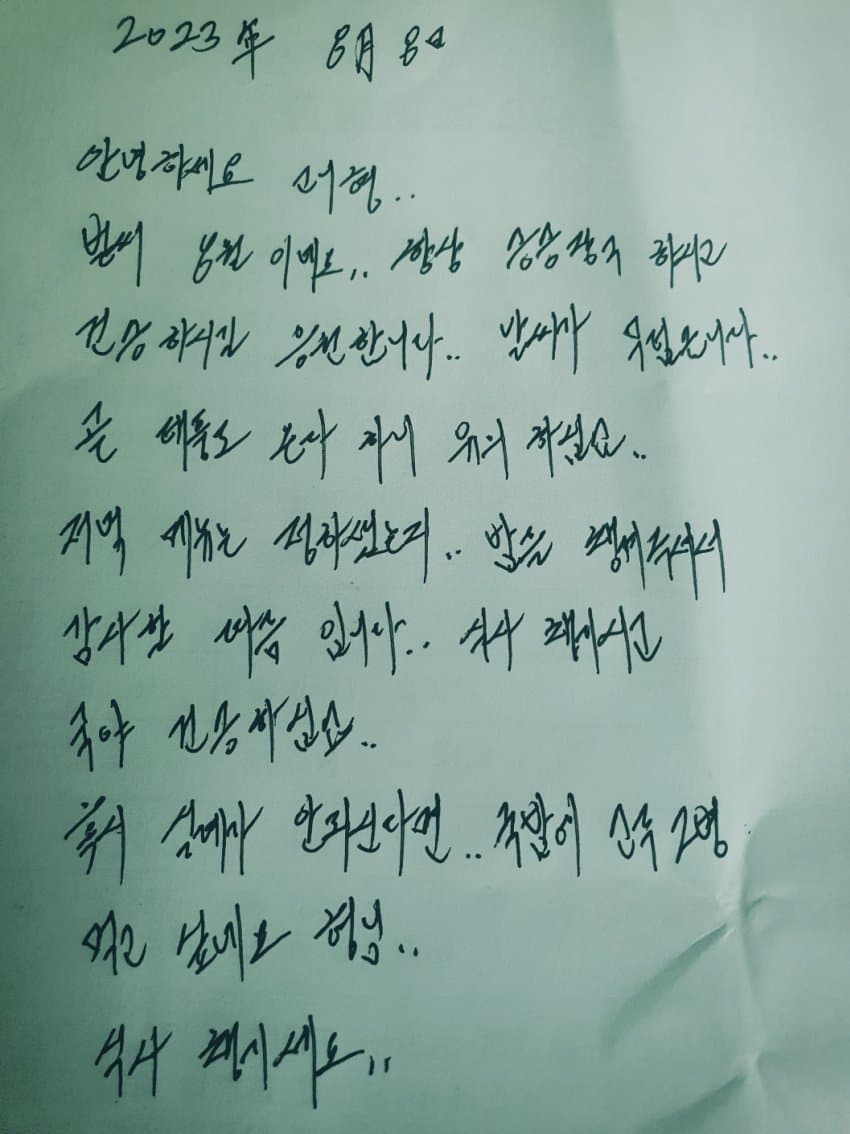 2023年 8月 8日
안녕하세요 형..
벌써 8월 이네요.. 항상 승승장구 하시고
건승하시길 응원합니다.. 날씨가 무덥습니다..
곧 태풍도 온다 하니 유의 하십쇼..
저녁 메뉴는 정하셨는지.. 밥은 챙겨주셔서
감사한 마음 입니다.. 식사 챙기시고
국야 건승하십쇼..
혹시 실례가 안되신다면.. 족발에 소주 2병
먹고 싶네요 형님..
식사 챙기세요..